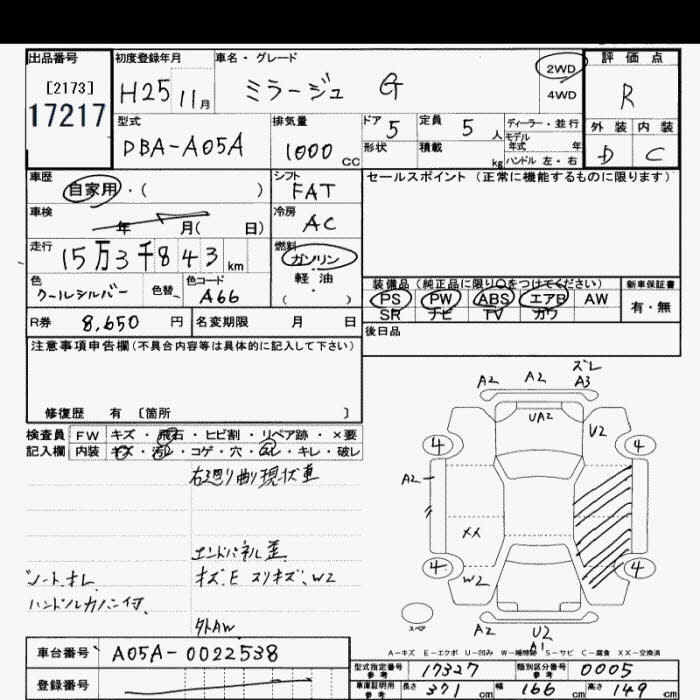 出品番号
[2173]
17217
初度登録年月
H25 11月
車名・グレード
ミラージュ G
2WD
4WD
評価点
R
外装 内装
D C
型式
DBA-A05A
排気量
1000 CC
ドア 5
形状
定員 5 人
積載 kg
ディーラー・並行
モデル
年式 年
ハンドル 左・右
車歴
自家用・( )
シフト
FAT
セールスポイント (正常に機能するものに限ります)
車検
年 月( 日)
冷房
AC
走行
15万3千843 km
燃料
ガソリン
軽油
( )
色
クールシルバー
色替
色コード
A66
装備品 (純正品に限り○をつけてください)
PS PW ABS エアB AW
SR ナビ TV カワ
新車保証書
有・無
R券 8,650 円
名変期限 月 日
後日品
注意事項申告欄(不具合内容等は具体的に記入して下さい)
修復歴 有 〔箇所 〕
検査員
記入欄
FW キズ・飛石・ヒビ割・リペア跡・×要
内装 キズ・汚レ・コゲ・穴・スレ・キレ・破レ
右廻り曲り現状車
エンドパネル歪
シートヨレ
キズ、E スリキズ、W2
ハンドルカバー付
外AW
A2 A2 ズレ
A3
UA2
V2
4 4
A2
XX
4 4
W2
スペア
A2 U2
A1
A-キズ E-エクボ U-凹み W-補修跡 S-サビ C-腐食 XX-交換済
車台番号 A05A-0022538
登録番号
型式指定番号
参考
17327
類別区分番号
参考
0005
車庫証明用
参考
長さ 371 cm 幅 166 cm 高さ 149 cm